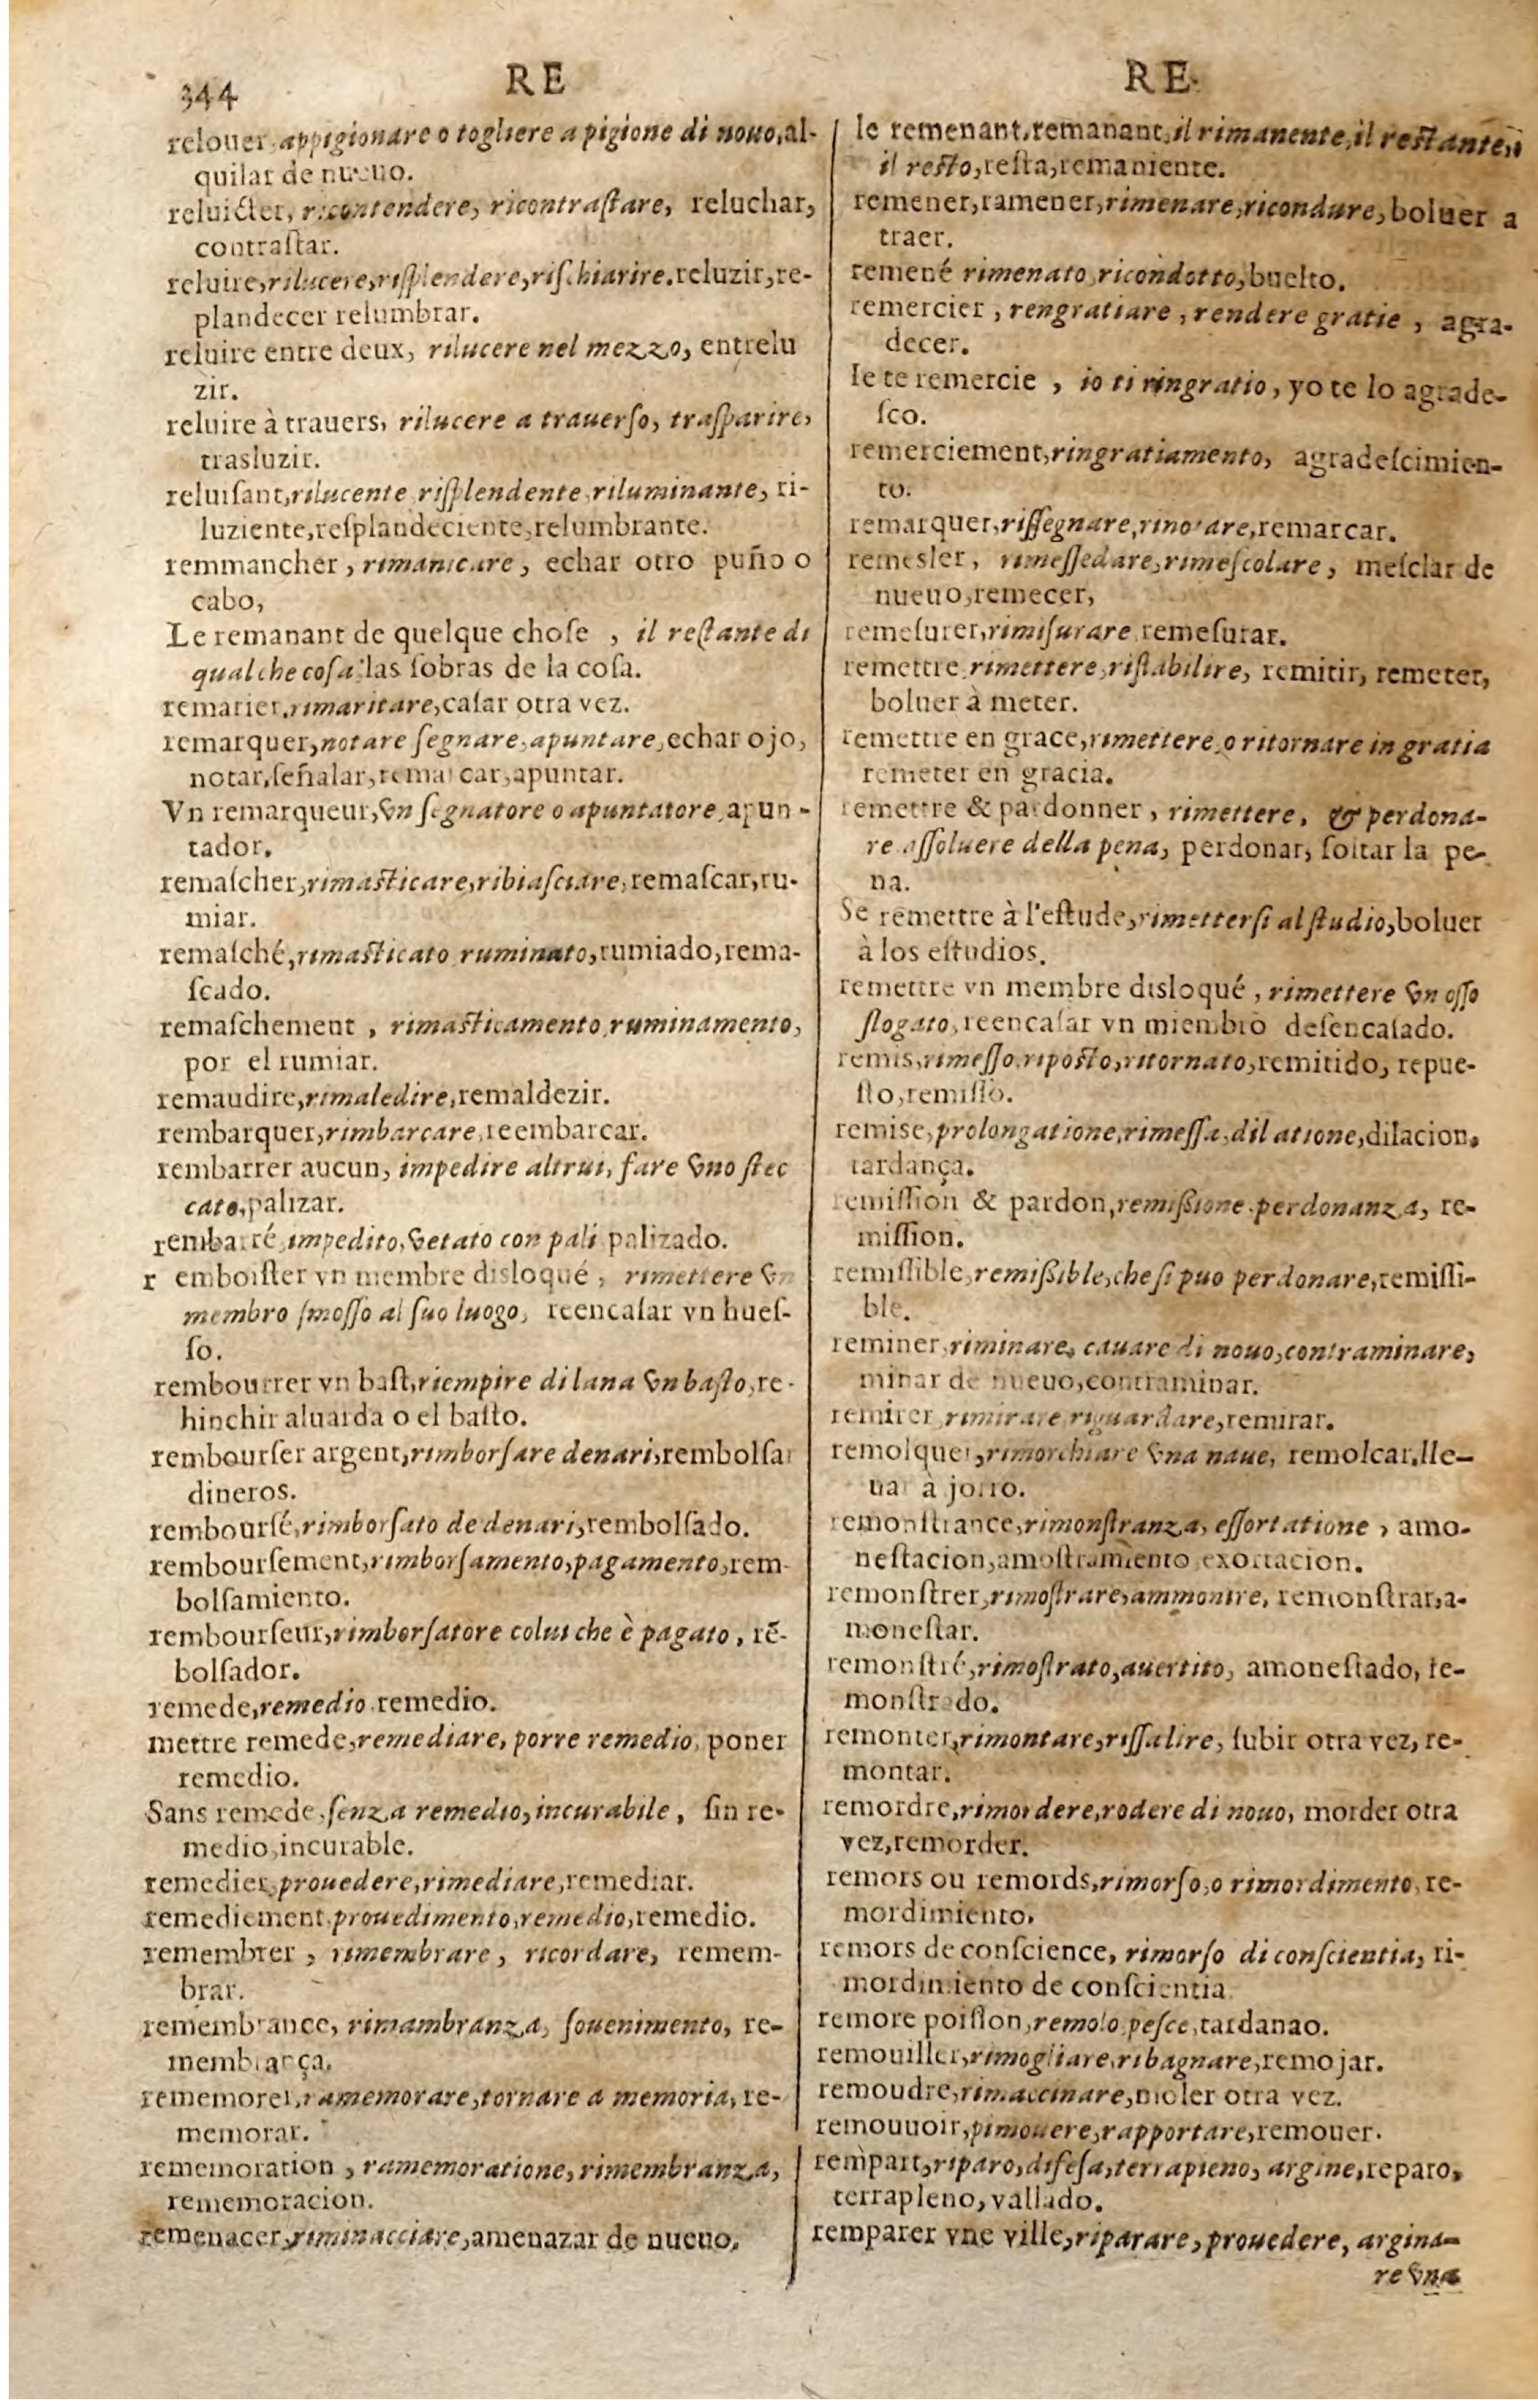 344
RE
relouer, appigionare o togliere a pigione di nouo, al-
quilar de nueuo.
reluicter, ricontendere, ricontraſtare, reluchar,
contraſtar.
reluire, rilucere, riſplendere, riſchiarire. reluzir, re-
plandecer relumbrar.
reluire entre deux, rilucere nel mezzo, entrelu
zir.
reluire à trauers, rilucere a trauerſo, traſparire,
trasluzir.
reluiſant, rilucente riſplendente riluminante, ri-
luziente, reſplandeciente, relumbrante.
remmancher, rimanicare, echar otro puño o
cabo,
Le remanant de quelque choſe, il reſtante di
qualche coſa las ſobras de la coſa.
remarier, rimaritare, caſar otra vez.
remarquer, notare ſegnare, apuntare, echar ojo,
notar, ſeñalar, remarcar, apuntar.
Vn remarqueur, vn ſegnatore o apuntatore, apun-
tador.
remaſcher, rimaſticare, ribiaſciare, remaſcar, ru-
miar.
remaſché, rimaſticato ruminato, rumiado, rema-
ſcado.
remaſchement, rimaſticamento, ruminamento,
por el rumiar.
remaudire, rimaledire, remaldezir.
rembarquer, rimbarcare, reembarcar.
rembarrer aucun, impedire altrui, fare vno ſtec
cato, palizar.
rembarré impedito, vetato con pali palizado.
r emboiſter vn membre disloqué, rimettere vn
membro ſmoſſo al ſuo luogo, reencaſar vn hueſ-
ſo.
rembourrer vn baſt, riempire di lana vn baſto, re-
hinchir aluarda o el baſto.
rembourſer argent, rimborſare denari, rembolſar
dineros.
rembourſé, rimborſato de denari, rembolſado.
rembourſement, rimborſamento, pagamento, rem-
bolſamiento.
rembourſeur, rimborſatore colui che è pagato, rē-
bolſador.
remede, remedio remedio.
mettre remede, remediare, porre remedio, poner
remedio.
Sans remede, ſenza remedio, incurabile, ſin re-
medio, incurable.
remedier, prouedere, rimediare, remediar.
remediement, prouedimento, remedio, remedio.
remembrer, rimembrare, ricordare, remem-
brar.
remembrance, rimambranza, ſouenimento, re-
membrança.
rememorer, ramemorare, tornare a memoria, re-
memorar.
rememoration, ramemoratione, rimembranza,
rememoracion.
remenacer, riminacciare, amenazar de nueuo.
RE
le remenant, remanant, il rimanente, il reſtante,
il reſto, reſta, remaniente.
remener, ramener, rimenare, ricondure, boluer a
traer.
remené rimenato, ricondotto, buelto.
remercier, rengratiare, rendere gratie, agra-
decer.
Ie te remercie, io ti ringratio, yo te lo agrade-
ſco.
remerciement, ringratiamento, agradeſcimien-
to.
remarquer, riſſegnare, rinotare, remarcar.
remesler, rimeſſedare, rimeſcolare, meſclar de
nueuo, remecer,
remeſurer, rimiſurare remeſurar.
remettre, rimettere, riſtabilire, remitir, remeter,
boluer à meter.
remettre en grace, rimettere, o ritornare in gratia
remeter en gracia.
remettre & pardonner, rimettere, & perdona-
re aſſoluere della pena, perdonar, ſoltar la pe-
na.
Se remettre à l'eſtude, rimetterſi al ſtudio, boluer
à los eſtudios.
remettre vn membre disloqué, rimettere vn oſſo
ſlogato, reencaſar vn miembro deſencaſado.
remis, rimeſſo, ripoſto, ritornato, remitido, repue-
ſto, remiſſo.
remise, prolongatione, rimeſſa, dilatione, dilacion,
tardança.
remiſſion & pardon, remißione, perdonanza, re-
miſſion.
remiſſible, remißible, che ſi puo perdonare, remiſſi-
ble.
reminer, riminare, cauare di nouo, contraminare,
minar de nueuo, contraminar.
remirer rimirare riguardare, remirar.
remolquer, rimorchiare vna naue, remolcar, lle-
uar à jorro.
remonſtrance, rimonſtranza, eſſortatione, amo-
neſtacion, amoſtramiento exortacion.
remonſtrer, rimoſtrare, ammonire, remonſtrar, a-
moneſtar.
remonſtré, rimoſtrato, auertito, amoneſtado, re-
monſtrado.
remonter, rimontare, riſſalire, ſubir otra vez, re-
montar.
remordre, rimordere, rodere di nouo, morder otra
vez, remorder.
remors ou remords, rimorſo, o rimordimento, re-
mordimiento.
remors de conſcience, rimorſo di conſcientia, ri-
mordimiento de conſcientia.
remore poiſſon, remolo peſce, tardanao.
remouiller, rimogliare, ribagnare, remojar.
remoudre, rimaccinare, moler otra vez.
remouuoir, pimouere, rapportare, remouer.
rempart, riparo, difeſa, terrapieno, argine, reparo,
terrapleno, vallado.
remparer vne ville, riparare, prouedere, argina-
re vna